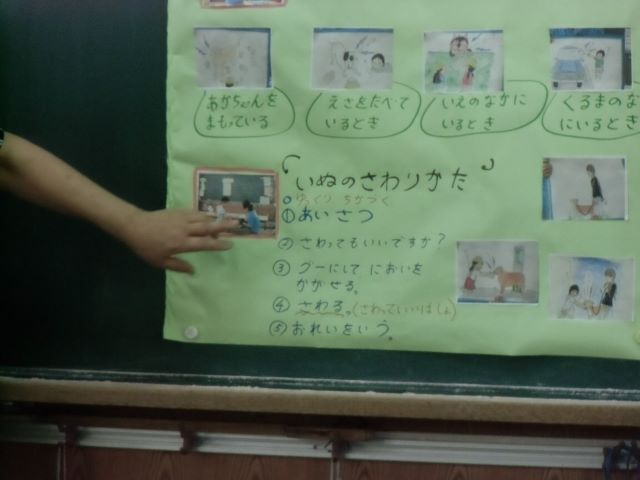 あかちゃんを
まもっている
えさをたべて
いるとき
いえのなかに
いるとき
くるまのな
にいるとき
いぬのさわりかた
ゆっくり ちかづく
①あいさつ
②さわってもいいですか?
③グーにして においを
かがせる。
④さわる。(さわっていいばしょ)
⑤おれいをいう。